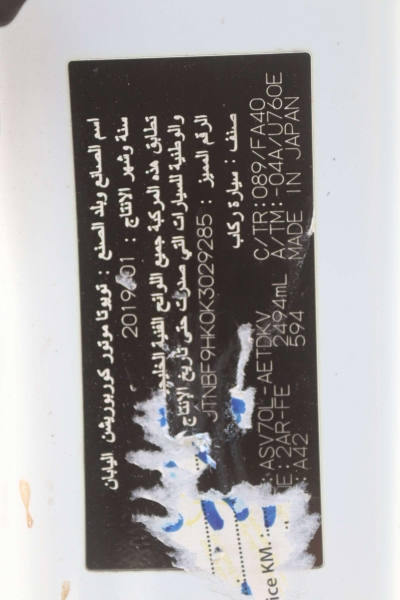 اسم الصانع وبلد الصنع : تويوتا موتور كوربوريشن اليابان
سنة وشهر الإنتاج : 2019 01
تطابق هذه المركبة جميع اللوائح الفنية الخليجية
والوطنية للسيارات التي صدرت حتى تاريخ الإنتاج
الرقم المميز : JTNBF9HK0K3029285
صنف : سيارة ركاب
:ASV70L-AETDKV C/TR:089/FA40
NE:2AR-FE 2494mL A/TM:-04A/U760E
:A42 594 MADE IN JAPAN
ice KM.